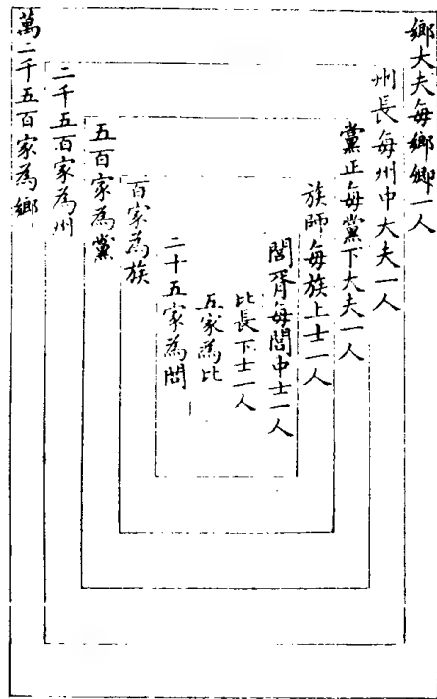 鄉大夫每鄉卿一人
州長每州中大夫一人
黨正每黨下大夫一人
族師每族上士一人
閭胥每閭中士一人
比長下士一人
五家為比
二十五家為閭
百家為族
五百家為黨
二千五百家為州
萬二千五百家為鄉